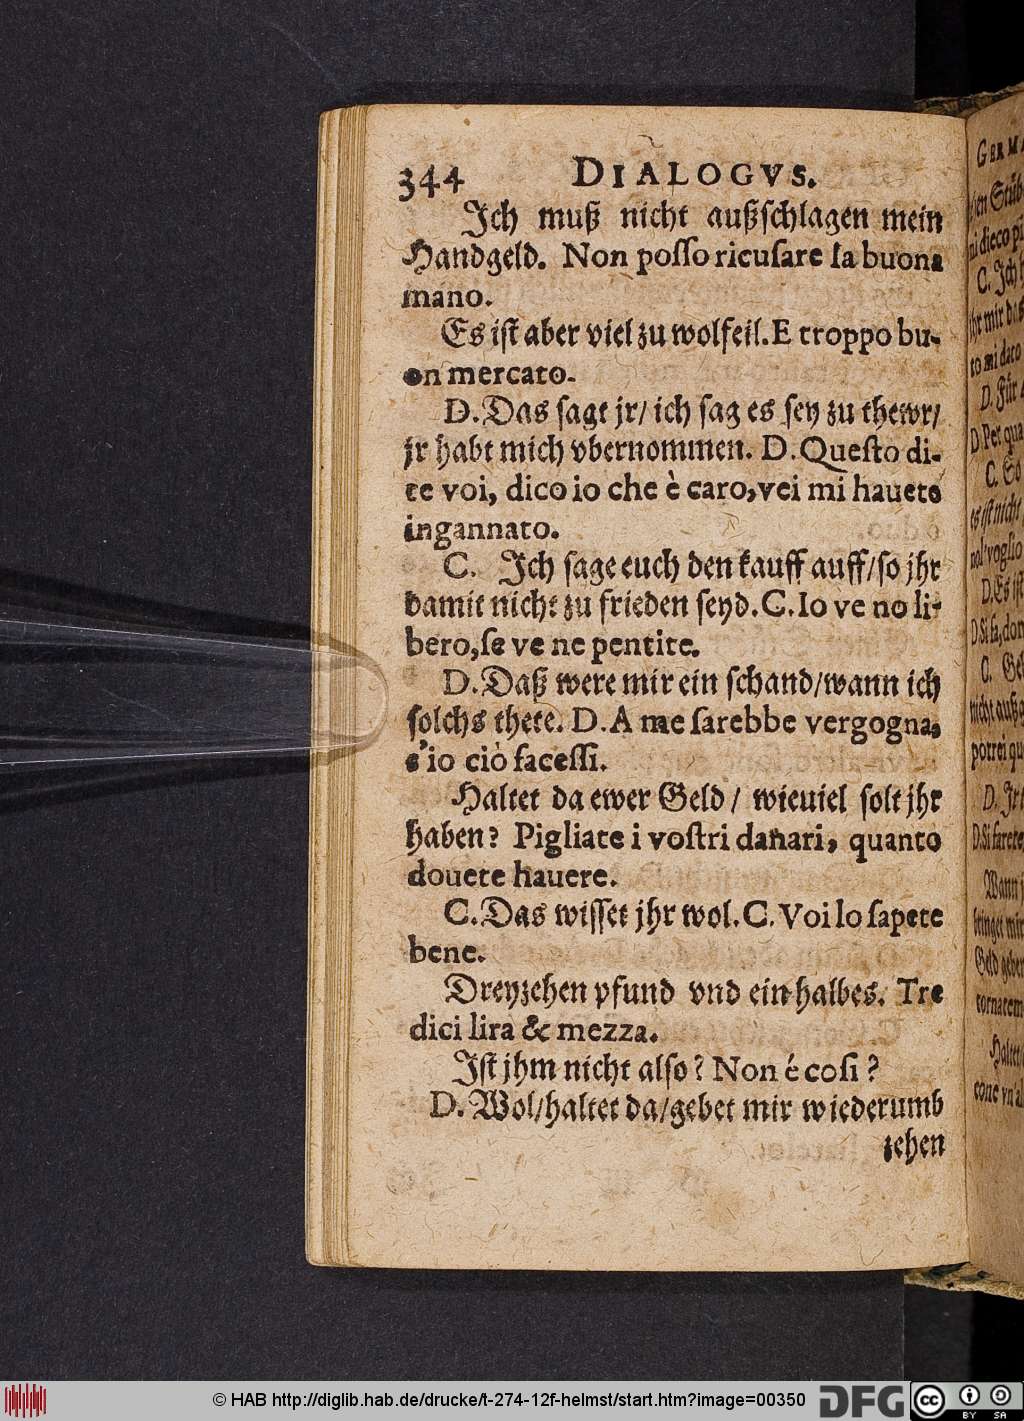 344 DIALOGVS.
Ich muß nicht außſchlagen mein
Handgeld. Non poſſo ricuſare la buona
mano.
Es iſt aber viel zu wolfeil. E troppo bu-
on mercato.
D. Das ſagt jr/ ich ſag es ſey zu thewr/
jr habt mich vbernommen. D. Queſto di-
te voi, dico io che è caro, vei mi hauete
ingannato.
C. Ich ſage euch den kauff auff/ ſo jhr
damit nicht zu frieden ſeyd. C. Io ve no li-
bero, ſe ve ne pentite.
D. Daß were mir ein ſchand/ wann ich
ſolchs thete. D. A me ſarebbe vergogna,
s'io ciò faceſſi.
Haltet da ewer Geld/ wieuiel ſolt jhr
haben? Pigliate i voſtri danari, quanto
douete hauere.
C. Das wiſſet jhr wol. C. Voi lo ſapete
bene.
Dreyzehen pfund vnd ein halbes. Tre
dici lira & mezza.
Iſt jhm nicht alſo? Non é coſi?
D. Wol/ haltet da/ gebet mir wiederumb
zehen
© HAB http://diglib.hab.de/drucke/t-274-12f-helmst/start.htm?image=00350
DFG
cc BY SA